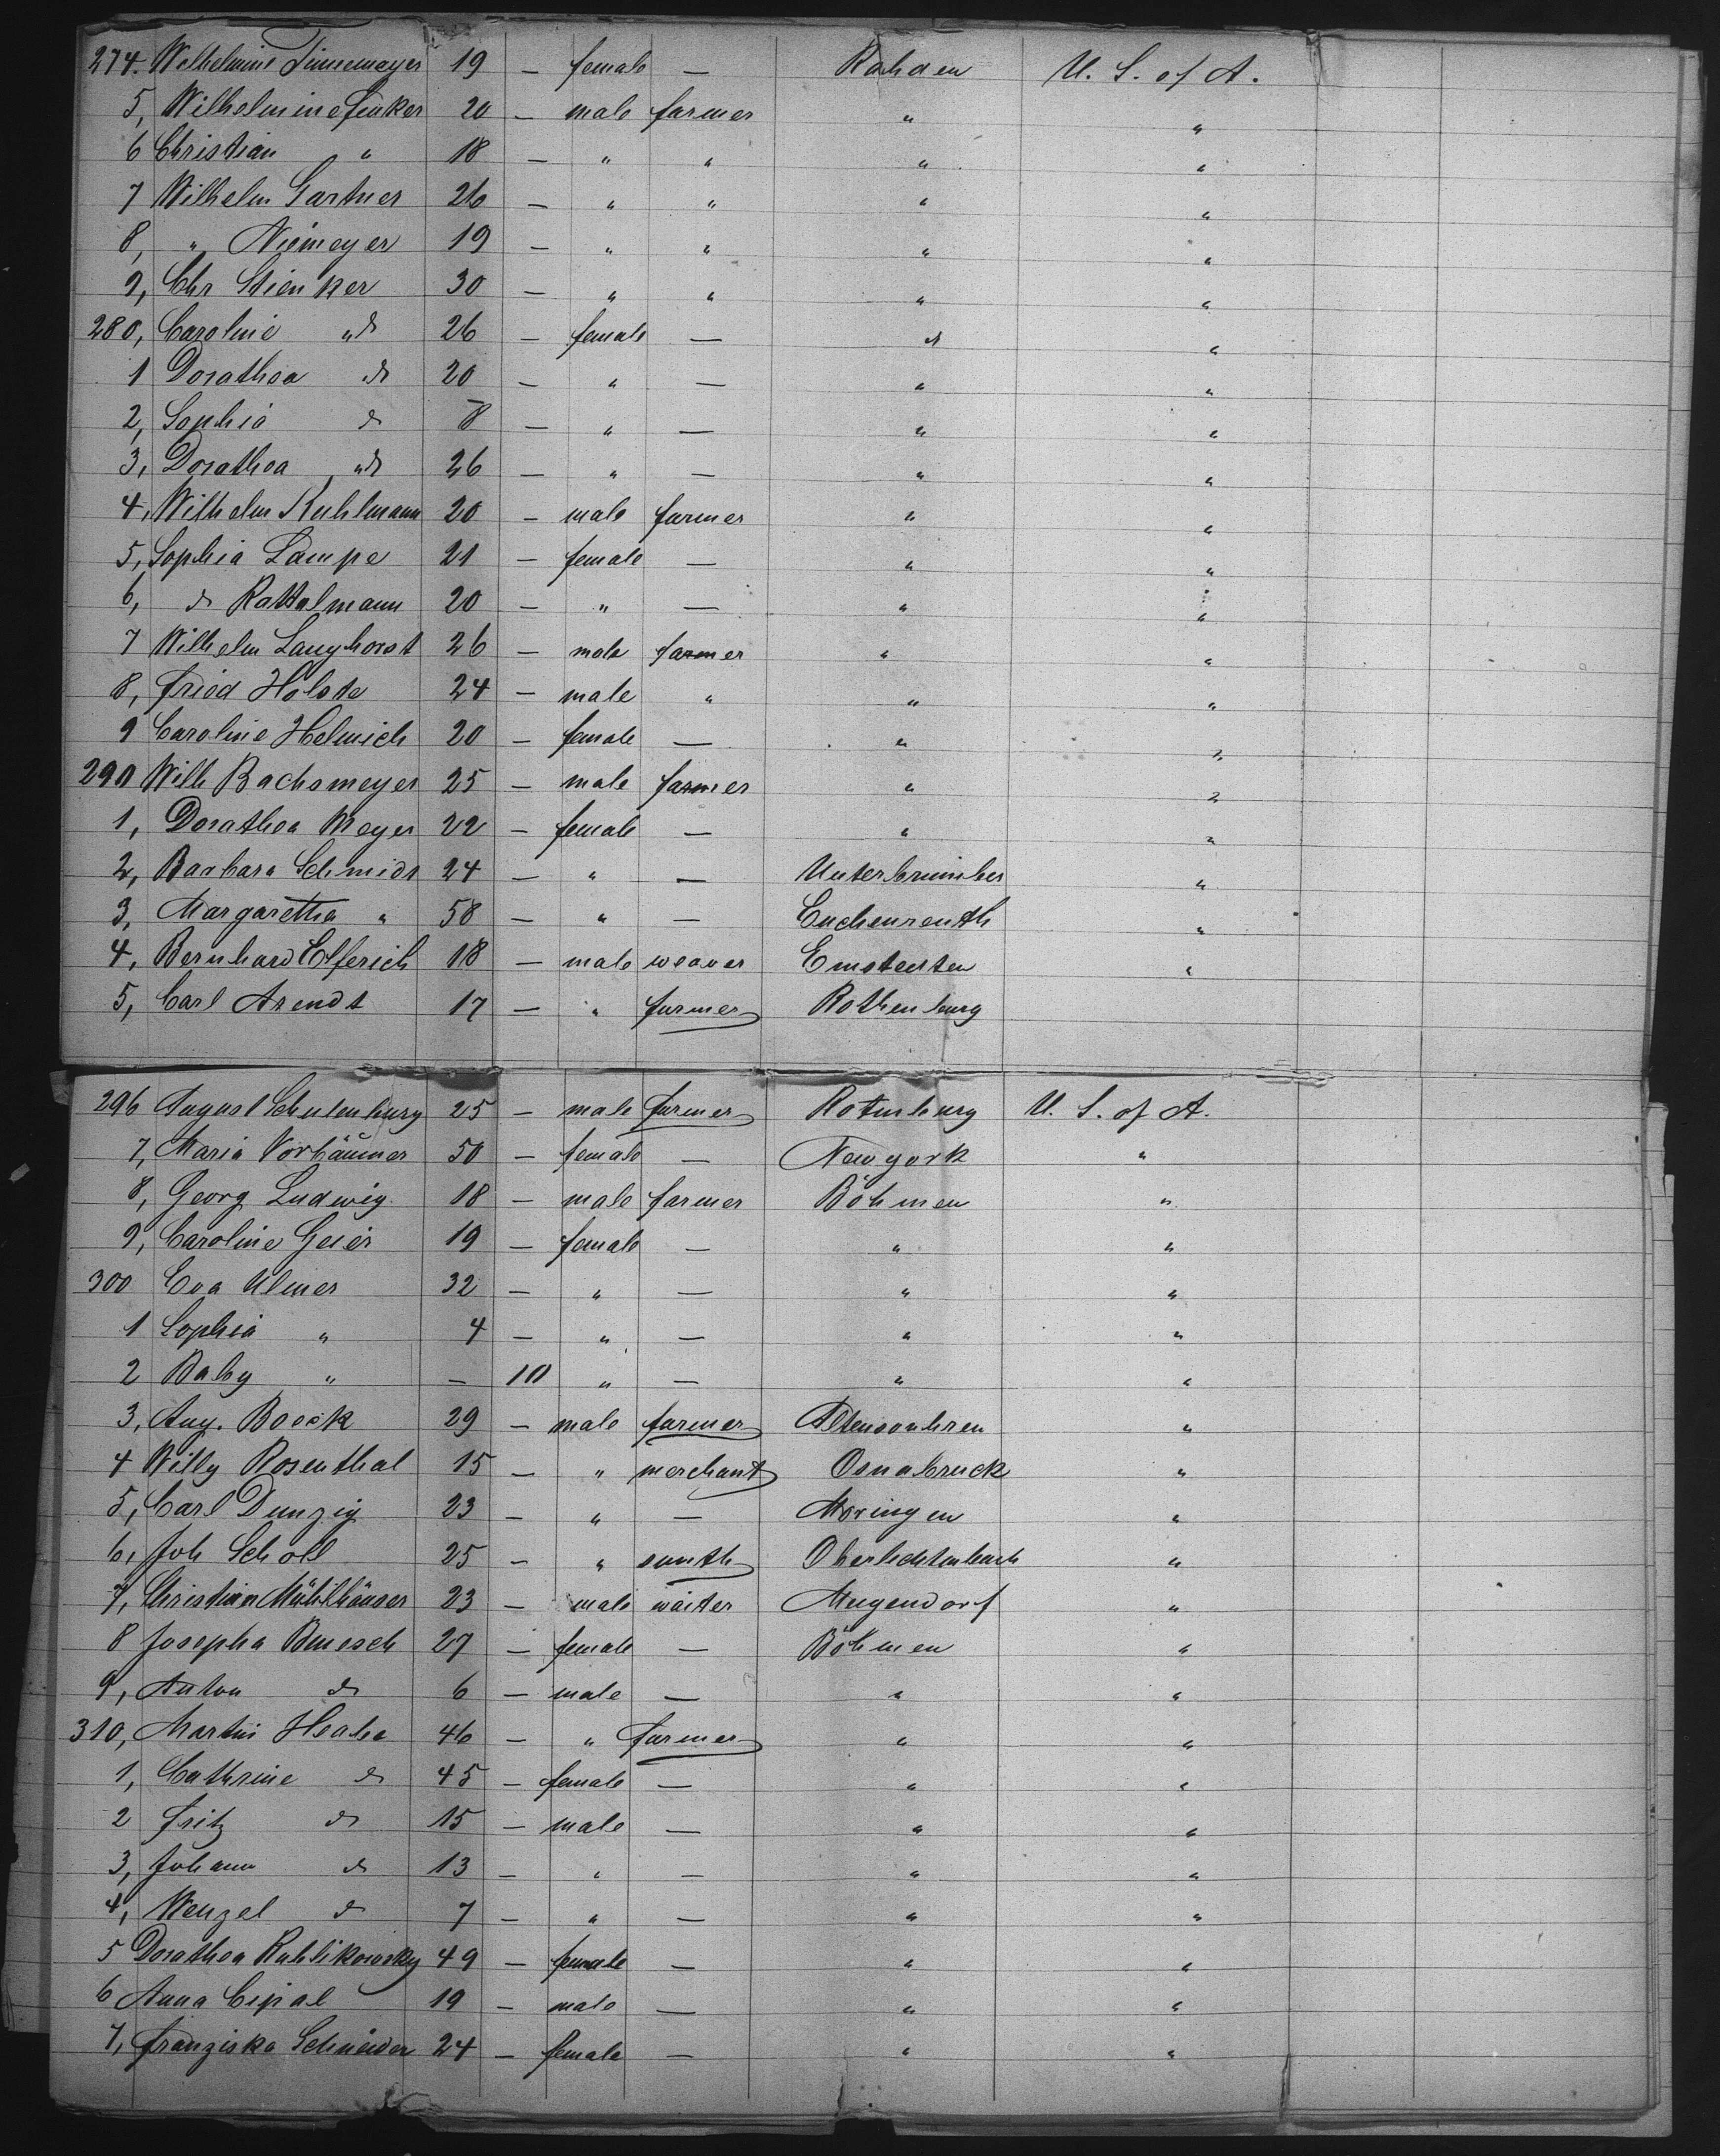 274. Wilhelmine Tinnemeyer 19 — female — Rahden U. S. of A.
5, Wilhelmine Finker 20 — male farmer " "
6 Christian " 18 — " " " "
7 Wilhelm Gartner 26 — " " " "
8, " Niemeyer 19 — " " " "
9, Chr Stienker 30 — " " " "
280, Caroline " do 26 — female — do "
1 Dorathea do 20 — " — " "
2, Sophie do 8 — " — " "
3, Dorathea " do 26 — " — " "
4, Wilhelm Kuhlmann 20 — male farmer " "
5, Sophia Lampe 21 — female — " "
6, do Rattelmann 20 — " — " "
7 Wilhelm Langhorst 26 — male farmer " "
8, Fried Holste 24 — male " " "
9 Caroline Helmich 20 — female — " "
290 Wilh Bachsmeyer 25 — male farmer " "
1, Dorathea Meyer 22 — female — " "
2, Barbara Schmidt 24 — " — "
3, Margaretha " 58 — " — Enchenreuth "
4, Bernhard Elferich 18 — male weaver Emstedten "
5, Carl Arendt 17 — " farmer Rothenburg
296 August Schulenburg 25 — male farmer Rotenburg U. S. of A.
7, Maria Vorbäumer 50 — female — Newyork "
8, Georg Ludwig 18 — male farmer Böhmen "
9, Caroline Geier 19 — female — " "
300 Eva Ulmer 32 — " — " "
1 Sophia " 4 — " — " "
2 Baby " — 10 " — " "
3, Aug. Boeck 29 — male farmer "
4 Willy Rosenthal 15 — " merchant Osnabruck "
5, Carl Dunzig 23 — " — Moringen "
6, Joh Scholl 25 — " smith "
7, Christian Mühlhäuser 23 — male waiter Mugendorf "
8 Josepha Benesch 27 — female — Böhmen "
9, Anton do 6 — male — " "
310, Martin Heaha 46 — " farmer " "
1, Cathrine do 45 — female — " "
2 Fritz do 15 — male — " "
3, Johann do 13 — " — " "
4, Wenzel do 7 — " — " "
5 Dorathea Kublikowsky 49 — female — " "
6 Anna Cipal 19 — male — " "
7, Franziska Schneider 24 — female — " "